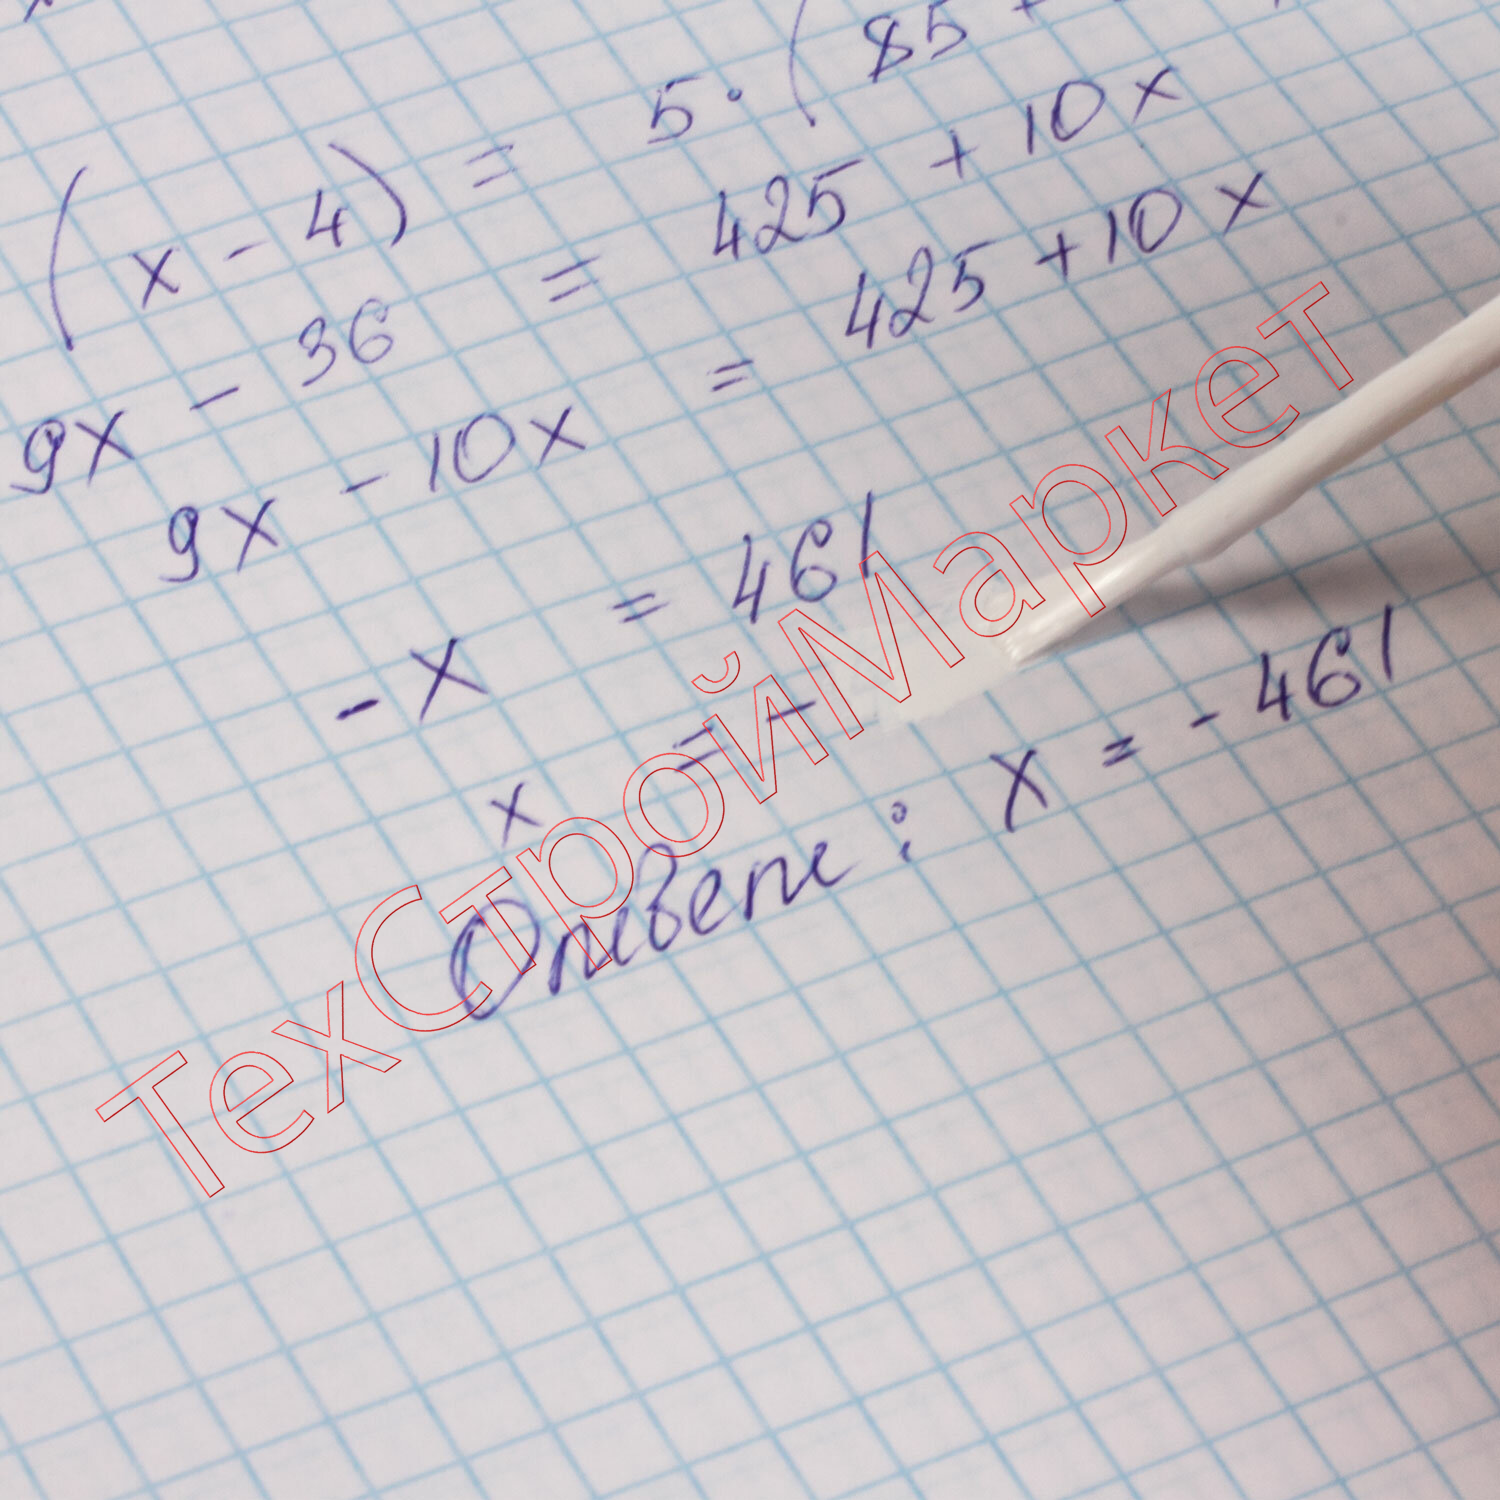 (x - 4) = 5 · (85 +
9x - 36 = 425 + 10x
9x - 10x = 425 + 10x
- x = 461
x = -
Ответ: x = - 461
ТехСтройМаркет